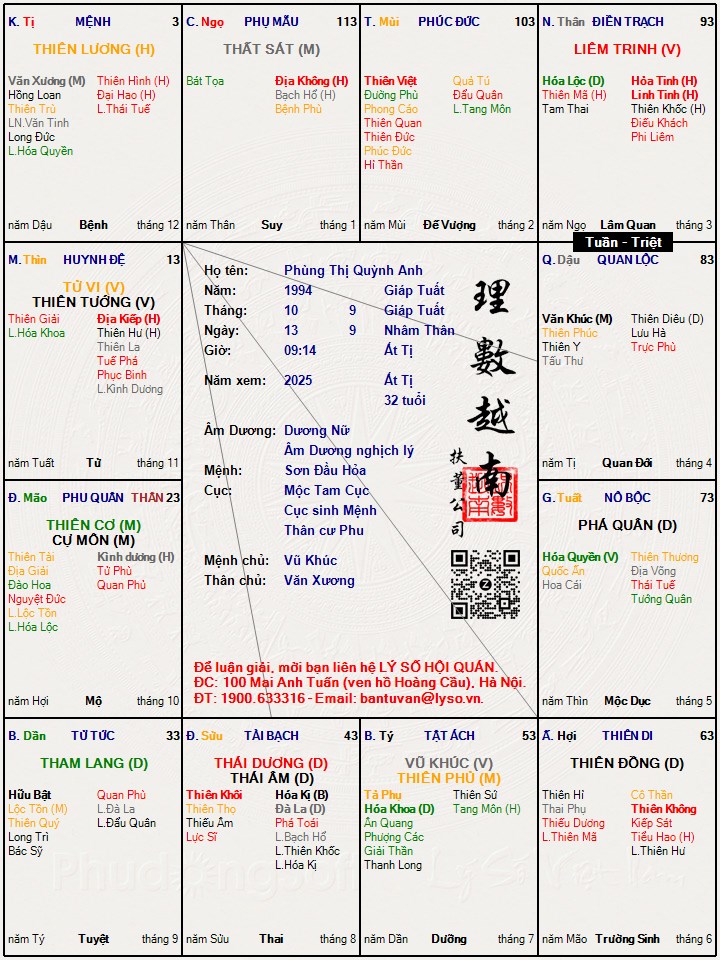 K. Tị MỆNH 3
THIÊN LƯƠNG (H)
Văn Xương (M) Thiên Hình (H)
Hồng Loan Đại Hao (H)
Thiên Trù L.Thái Tuế
LN.Văn Tinh
Long Đức
L.Hóa Quyền
năm Dậu Bệnh tháng 12
C. Ngọ PHỤ MẪU 113
THẤT SÁT (M)
Bát Tọa Địa Không (H)
Bạch Hổ (H)
Bệnh Phù
năm Thân Suy tháng 1
T. Mùi PHÚC ĐỨC 103
Thiên Việt Quả Tú
Đường Phù Đẩu Quân
Phong Cáo L.Tang Môn
Thiên Quan
Thiên Đức
Phúc Đức
Hỉ Thần
năm Mùi Đế Vượng tháng 2
N. Thân ĐIỀN TRẠCH 93
LIÊM TRINH (V)
Hóa Lộc (D) Hỏa Tinh (H)
Thiên Mã (H) Linh Tinh (H)
Tam Thai Thiên Khốc (H)
Điếu Khách
Phi Liêm
năm Ngọ Lâm Quan tháng 3
Tuần - Triệt
M. Thìn HUYNH ĐỆ 13
TỬ VI (V)
THIÊN TƯỚNG (V)
Thiên Giải Địa Kiếp (H)
L.Hóa Khoa Thiên Hư (H)
Thiên La
Tuế Phá
Phục Binh
L.Kình Dương
năm Tuất Tử tháng 11
Họ tên: Phùng Thị Quỳnh Anh
Năm: 1994 Giáp Tuất
Tháng: 10 9 Giáp Tuất
Ngày: 13 9 Nhâm Thân
Giờ: 09:14 Ất Tị
Năm xem: 2025 Ất Tị
32 tuổi
Âm Dương: Dương Nữ
Âm Dương nghịch lý
Mệnh: Sơn Đầu Hỏa
Cục: Mộc Tam Cục
Cục sinh Mệnh
Thân cư Phu
Mệnh chủ: Vũ Khúc
Thân chủ: Văn Xương
理數越南
扶董公司
Để luận giải, mời bạn liên hệ LÝ SỐ HỘI QUÁN.
ĐC: 100 Mai Anh Tuấn (ven hồ Hoàng Cầu), Hà Nội.
ĐT: 1900.633316 - Email: bantuvan@lyso.vn.
Q. Dậu QUAN LỘC 83
Văn Khúc (M) Thiên Diêu (D)
Thiên Phúc Lưu Hà
Thiên Y Trực Phù
Tấu Thư
năm Tị Quan Đới tháng 4
Đ. Mão PHU QUÂN THÂN 23
THIÊN CƠ (M)
CỰ MÔN (M)
Thiên Tài Kình dương (H)
Địa Giải Tử Phù
Đào Hoa Quan Phủ
Nguyệt Đức
L.Lộc Tồn
L.Hóa Lộc
năm Hợi Mộ tháng 10
G. Tuất NÔ BỘC 73
PHÁ QUÂN (D)
Hóa Quyền (V) Thiên Thương
Quốc Ấn Địa Võng
Hoa Cái Thái Tuế
Tướng Quân
năm Thìn Mộc Dục tháng 5
B. Dần TỬ TỨC 33
THAM LANG (D)
Hữu Bật Quan Phù
Lộc Tồn (M) L.Đà La
Thiên Quý L.Đẩu Quân
Long Trì
Bác Sỹ
năm Tý Tuyệt tháng 9
Đ. Sửu TÀI BẠCH 43
THÁI DƯƠNG (D)
THÁI ÂM (D)
Thiên Khôi Hóa Kị (B)
Thiên Thọ Đà La (D)
Thiếu Âm Phá Toái
Lực Sĩ L.Bạch Hổ
L.Thiên Khốc
L.Hóa Kị
năm Sửu Thai tháng 8
B. Tý TẬT ÁCH 53
VŨ KHÚC (V)
THIÊN PHỦ (M)
Tả Phụ Thiên Sứ
Hóa Khoa (D) Tang Môn (H)
Ân Quang
Phượng Các
Giải Thần
Thanh Long
năm Dần Dưỡng tháng 7
Ấ. Hợi THIÊN DI 63
THIÊN ĐỒNG (D)
Thiên Hỉ Cô Thần
Thai Phụ Thiên Không
Thiếu Dương Kiếp Sát
L.Thiên Mã Tiểu Hao (H)
L.Thiên Hư
năm Mão Trường Sinh tháng 6